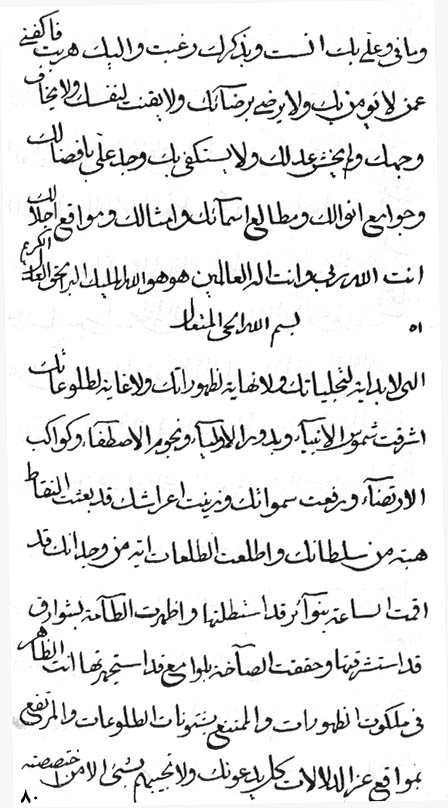 وما في وعلي بك انست وبذكرك رغبت واليك هربت فاكفني
عمن لا يؤمن بك ولا يرضى برضآئك ولا يقنت لنفسك ولا يخاف
وجهك ولم يخش عدلك ولا يستكفى بك وجد علي بافضالك
وجوامع انوالك ومطالع اسمآئك وامثالك ومواقع اجلالك
انت الله ربي وانت اله العالمين هو هو الله المليك البر الحي
بسم الله الحي المتعال
الهي لا بداية لتجلياتك ولا نهاية لظهوراتك ولا غاية لطلوعاتك
اشرقت شموس الانبيآء وبدور الاوليآء ونجوم الاصطفآء وكواكب
الارتضآء ورفعت سمواتك وزينت اعراشك قد بعثت النقاط
هبته من سلطانك واطلعت الطلعات اية من وحدانك قد
اقمت الساعة بنوآئر قد استطلتها واظهرت الطآمة بشوارق
قد استشرقتها وحققت الصآخة بلوامع قد استجهرتها انت الظاهر
في ملكوت الظهورات والممتنع بشئونات الطلوعات والمرتفع
بمواقع عز الدلالات كل يدعونك ولا تجيبهم بشئ الا من اختصصته
٨٠